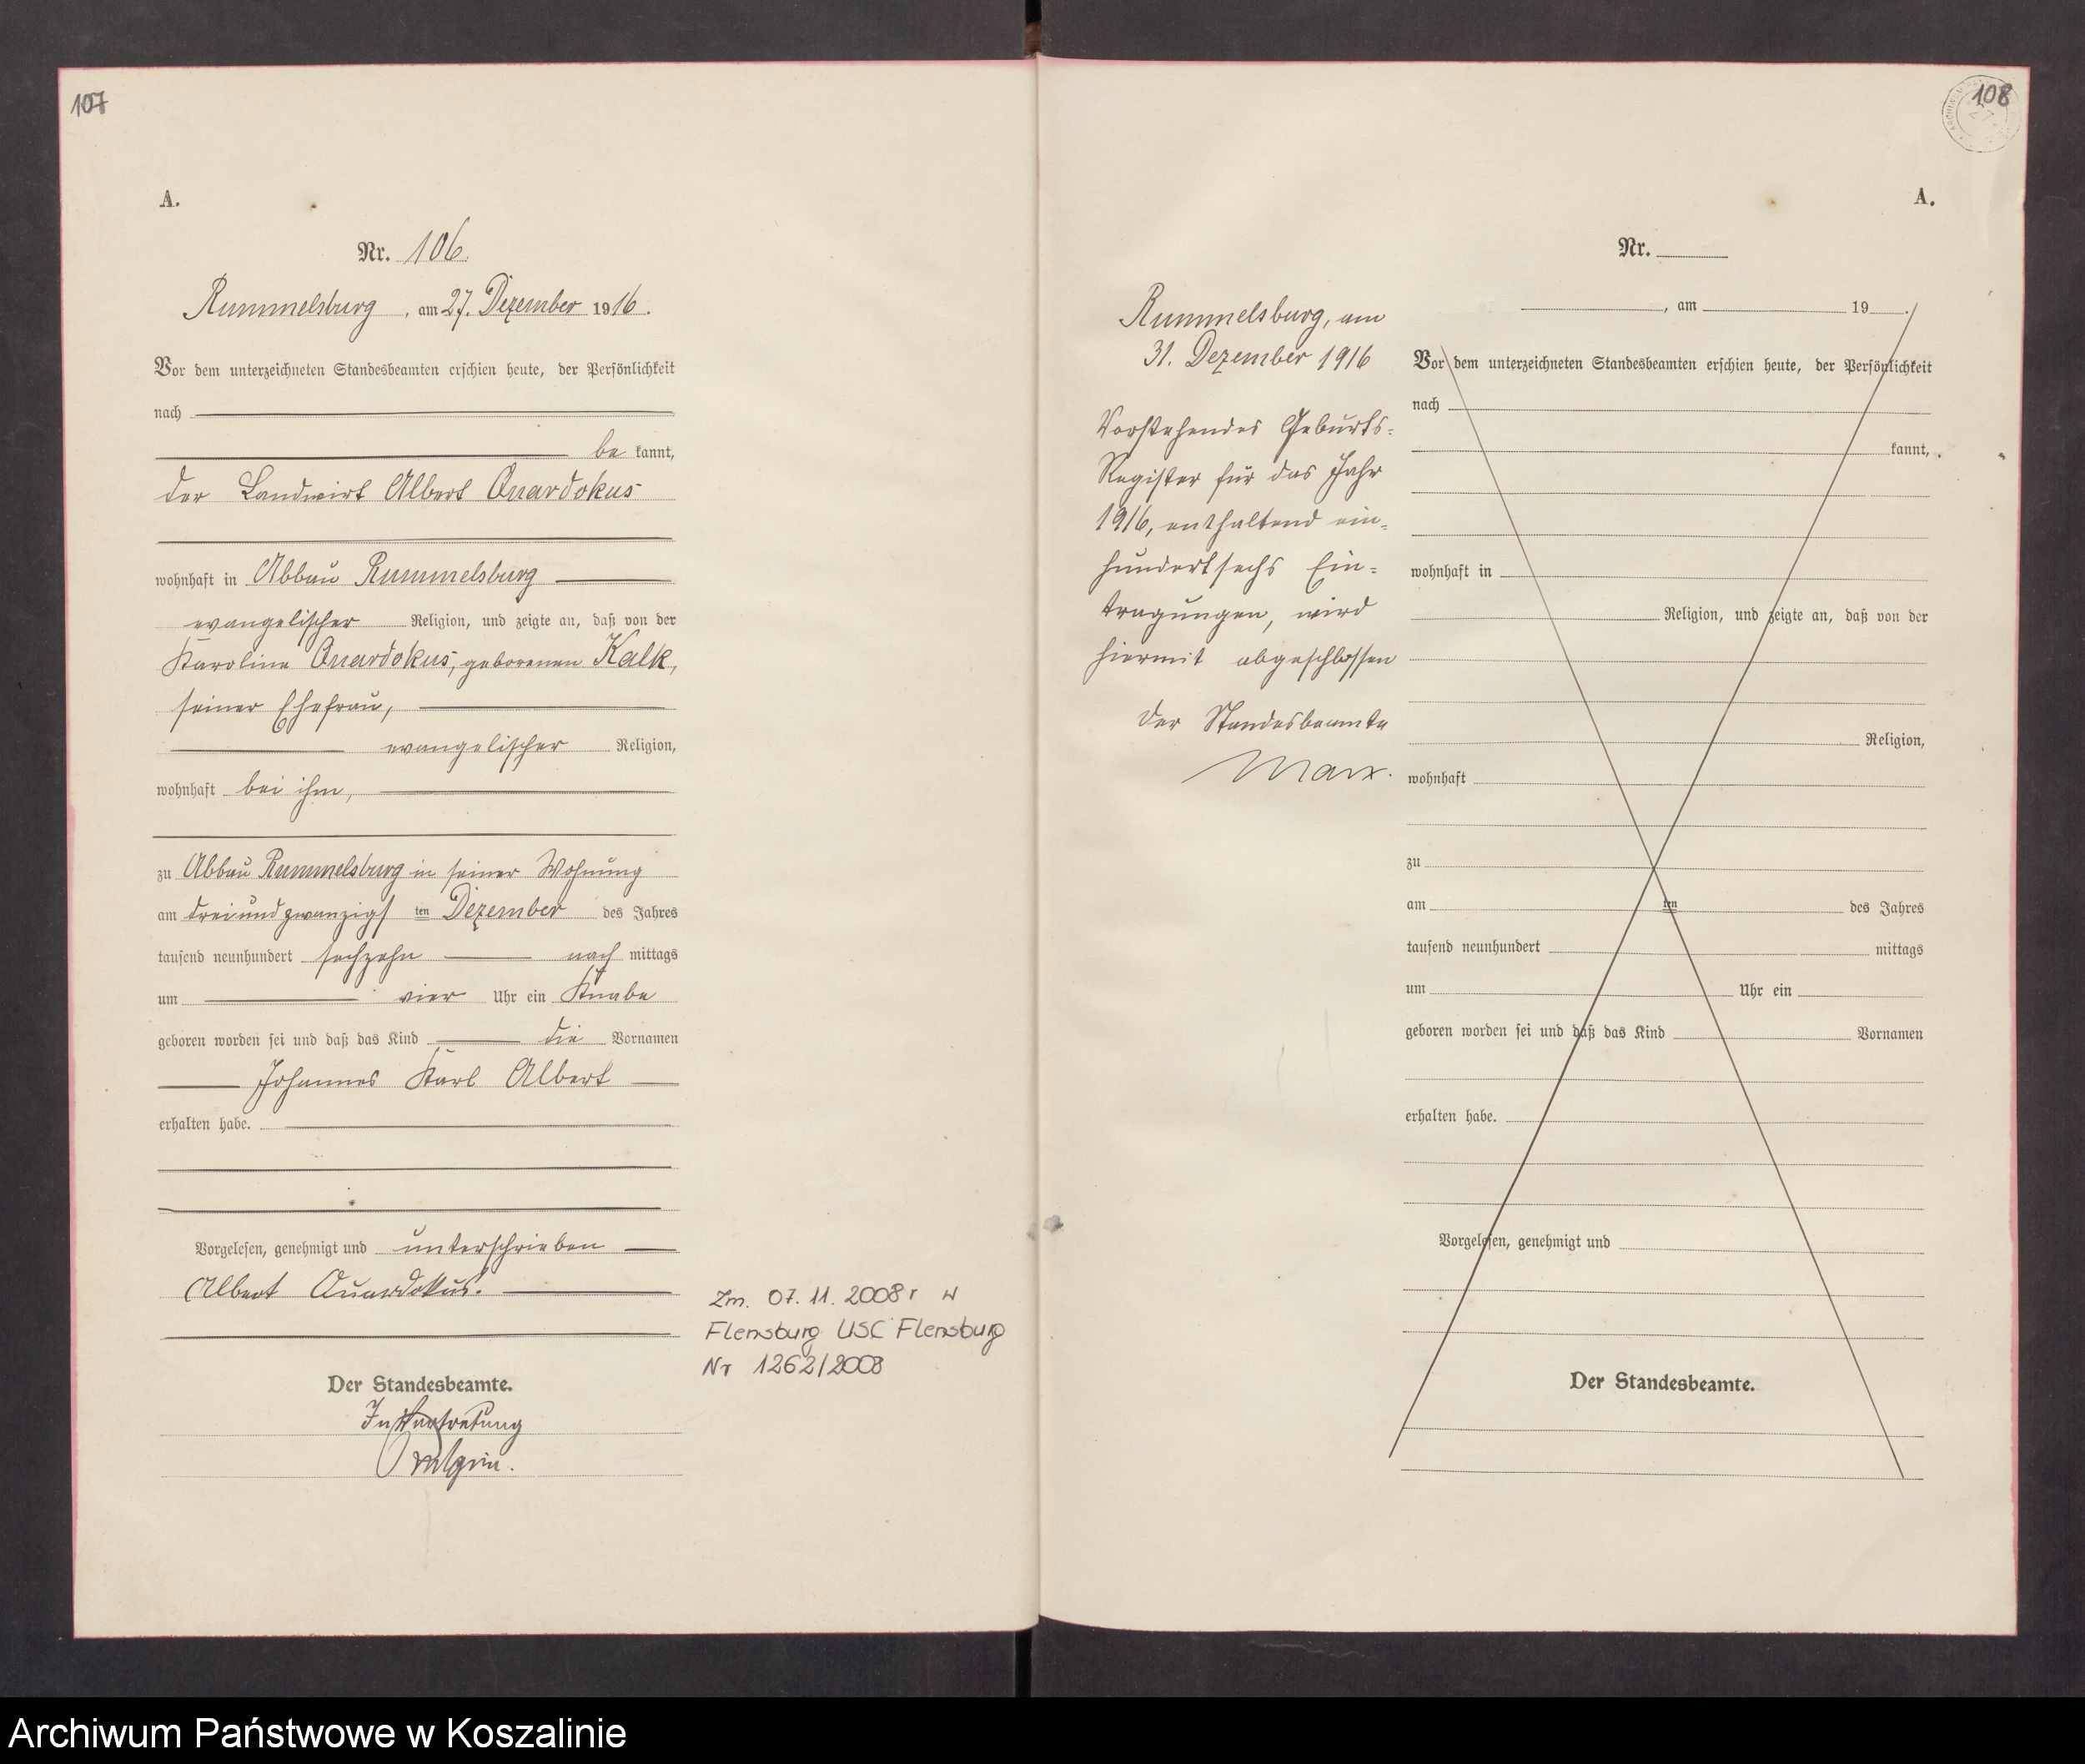 107
A.
Nr. 106.
Rummelsburg, am 27. Dezember 1916.
Vor dem unterzeichneten Standesbeamten erschien heute, der Persönlichkeit
nach
be kannt,
der Landwirt Albert Quardokus
wohnhaft in Abbau Rummelsburg
evangelischer Religion, und zeigte an, daß von der
Karoline Quardokus, geborenen Kalk,
seiner Ehefrau,
evangelischer Religion,
wohnhaft bei ihm,
zu Abbau Rummelsburg in seiner Wohnung
am dreiundzwanzigsten Dezember des Jahres
tausend neunhundert sechzehn nach mittags
um vier Uhr ein Knabe
geboren worden sei und daß das Kind die Vornamen
Johannes Karl Albert
erhalten habe.
Vorgelesen, genehmigt und unterschrieben
Albert Quardokus.
Der Standesbeamte.
In Vertretung
Zm. 07.11.2008 r w
Flensburg USC Flensburg
Nr 1262/2008
108
A.
Rummelsburg, am
31. Dezember 1916
Vorstehendes Geburts-
Register für das Jahr
1916, enthaltend ein-
hundertsechs Ein-
tragungen, wird
hiermit abgeschlossen
Der Standesbeamte
Marx.
Nr.
, am 19 .
Vor dem unterzeichneten Standesbeamten erschien heute, der Persönlichkeit
nach
kannt,
wohnhaft in
Religion, und zeigte an, daß von der
Religion,
wohnhaft
zu
am ten des Jahres
tausend neunhundert mittags
um Uhr ein
geboren worden sei und daß das Kind Vornamen
erhalten habe.
Vorgelesen, genehmigt und
Der Standesbeamte.
Archiwum Państwowe w Koszalinie